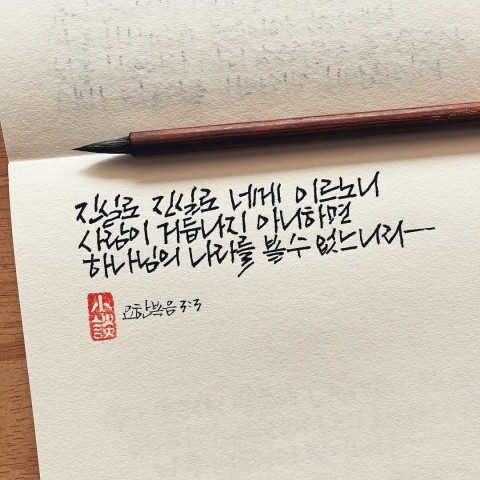 진실로 진실로 네게 이르노니
사람이 거듭나지 아니하면
하나님의 나라를 볼수 없느니라
小談
요한복음 3:3